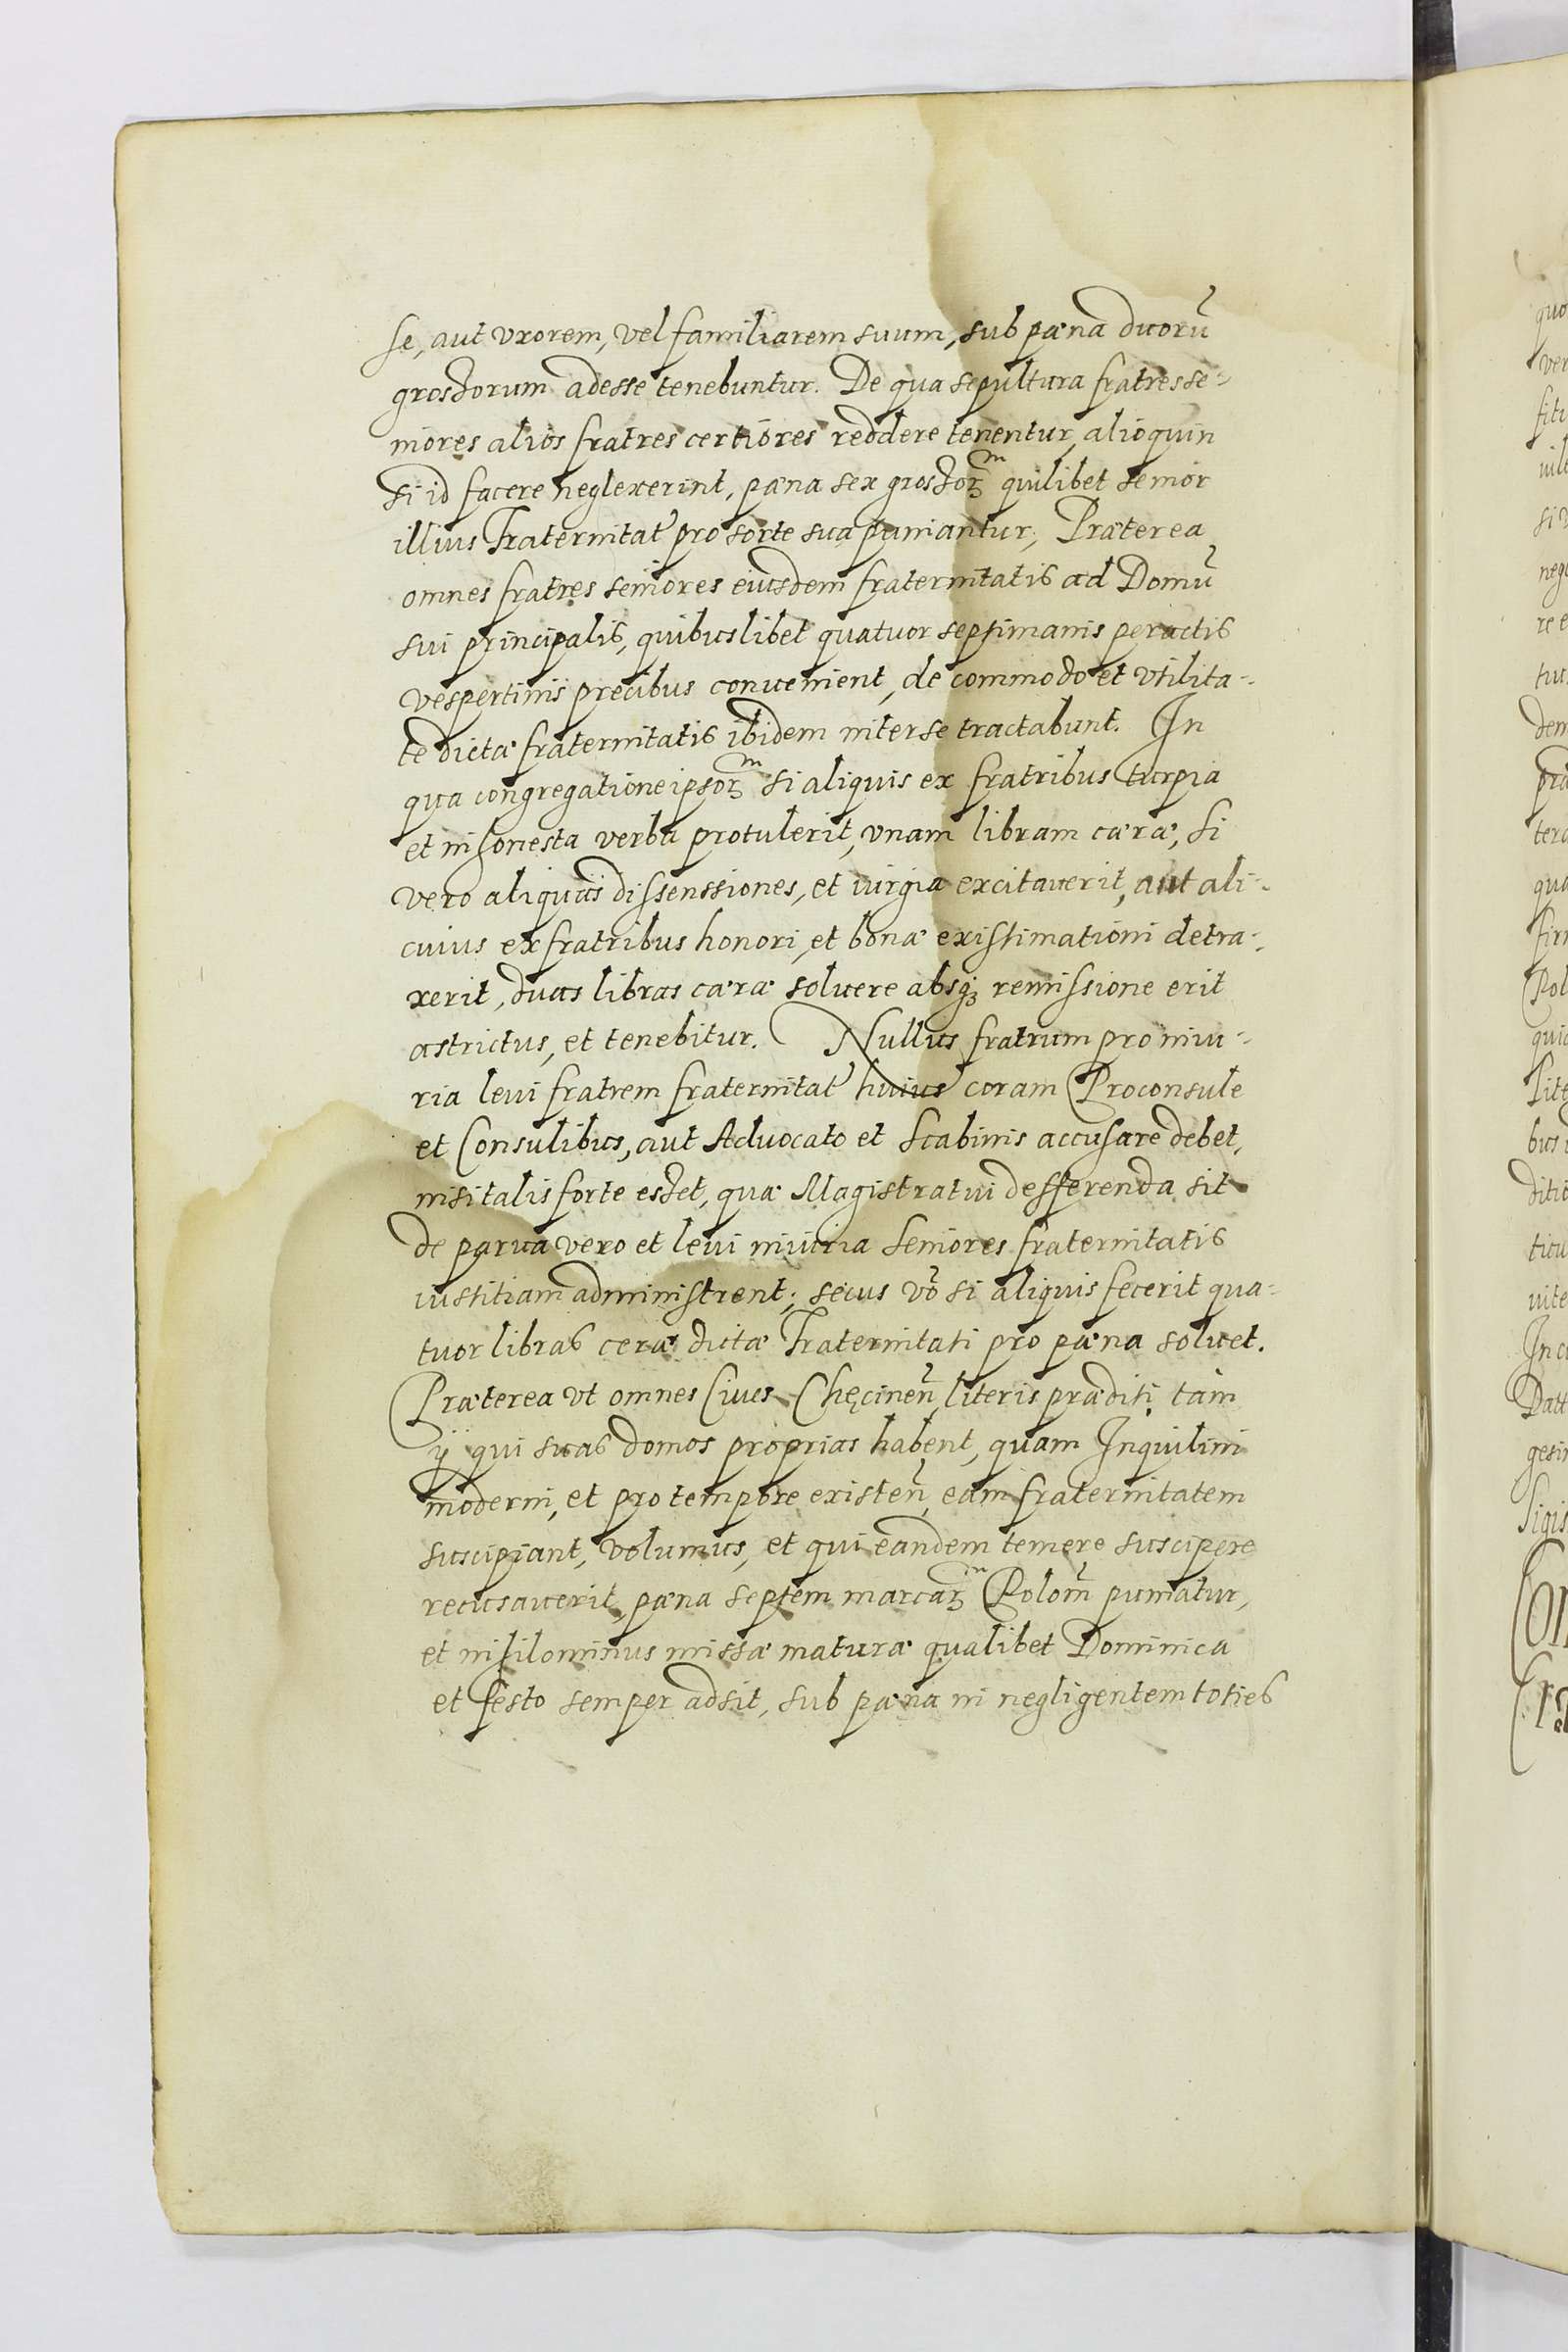 se, aut vxorem, vel familiarem suum, sub pæna duorũ
grossorum adesse tenebuntur. De qua sepultura fratres se-
niores alios fratres certiores reddere tenentur, alioquin
si id facere neglexerint, pæna sex grossoꝝͫ quilibet senior
illius Fraternitat̉ pro sorte sua puniantur, Præterea
omnes fratres seniores eiusdem fraternitatis ad Domũ
sui principalis, quibuslibet quatuor septimanis peractis
vespertinis precibus conuenient, de commodo et vtilita-
te dictæ fraternitatis ibidem inter se tractabunt. In
qua congregatione ipsoꝝͫ si aliquis ex fratribus turpia
et inhonesta verba protulerit, vnam libram cæræ, si
vero aliquas dissenssiones, et iurgia excitauerit, aut ali-
cuius ex fratribus honori, et bonæ existimationi detra-
xerit, duas libras cæræ soluere absqꝫ remissione erit
astrictus, et tenebitur. Nullus fratrum pro iniu-
ria leui fratrem fraternitat̉ huius coram Proconsule
et Consulibus, aut Aduocato et Scabinis accusare debet,
nisi talis forte esset, quæ Magistratui defferenda sit
de parua vero et leui iniuria seniores fraternitatis
iustitiam administrent; secus võ si aliquis fecerit qua-
tuor libras ceræ dictæ Fraternitati pro pæna soluet.
Præterea vt omnes Ciues Chęcineñ, literis præditi tàm
ÿ qui suas domos proprias habent, quam Inquilini
moderni, et pro tempore existeñ, eam fraternitatem
suscipiant, volumus, et qui eandem temere suscipere
recusauerit, pæna septem marcaꝝͫ Polom̃ puniatur,
et nihilominus missæ maturæ qualibet Dominica
et festo semper adsit, sub pæna in negligentem toties